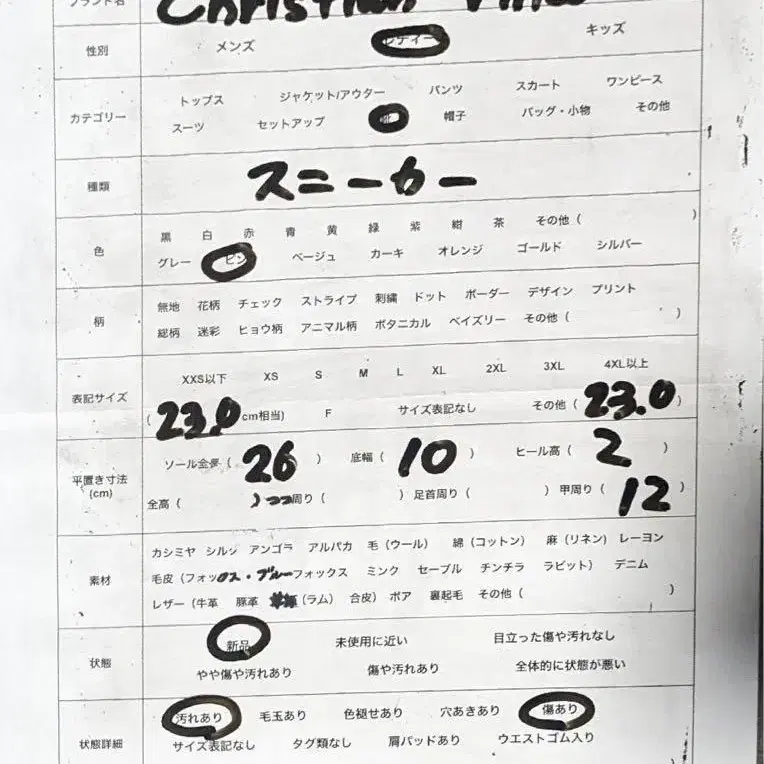 ブランド名 Christian
性別 メンズ レディース キッズ
カテゴリー トップス ジャケット/アウター パンツ スカート ワンピース
スーツ セットアップ 靴 帽子 バッグ・小物 その他
種類 スニーカー
色 黒 白 赤 青 黄 緑 紫 紺 茶 その他 ( )
グレー ピンク ベージュ カーキ オレンジ ゴールド シルバー
柄 無地 花柄 チェック ストライプ 刺繍 ドット ボーダー デザイン プリント
総柄 迷彩 ヒョウ柄 アニマル柄 ボタニカル ペイズリー その他 ( )
表記サイズ XXS以下 XS S M L XL 2XL 3XL 4XL以上
( 23.0 cm相当) F サイズ表記なし その他 ( 23.0 )
平置き寸法 (cm) ソール全長 ( 26 ) 底幅 ( 10 ) ヒール高 ( 2 )
全高 ( ) 周り ( ) 足首周り ( ) 甲周り ( 12 )
素材 カシミヤ シルク アンゴラ アルパカ 毛 (ウール) 綿 (コットン) 麻 (リネン) レーヨン
毛皮 (フォックス・ブルーフォックス ミンク セーブル チンチラ ラビット) デニム
レザー (牛革 豚革 (ラム) 合皮) ボア 裏起毛 その他 ( )
状態 新品 未使用に近い 目立った傷や汚れなし
やや傷や汚れあり 傷や汚れあり 全体的に状態が悪い
状態詳細 汚れあり 毛玉あり 色褪せあり 穴あきあり 傷あり
サイズ表記なし タグ類なし 肩パッドあり ウエストゴム入り